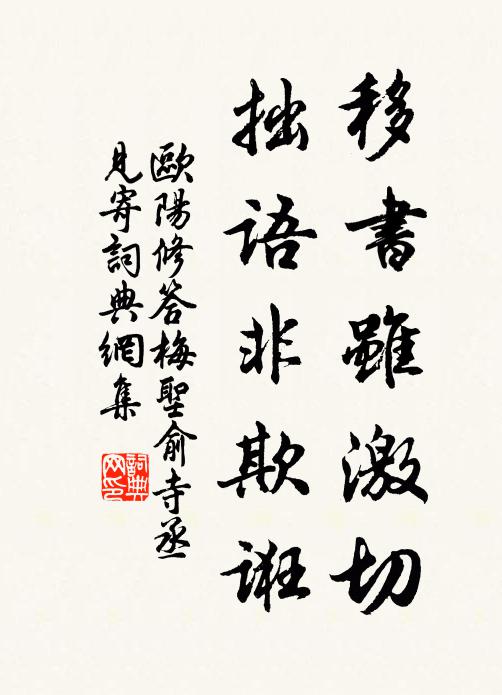 移書雖激切
拙語非欺誑
歐陽修答梅聖俞寺丞
見寄詞典網集
詞典網印